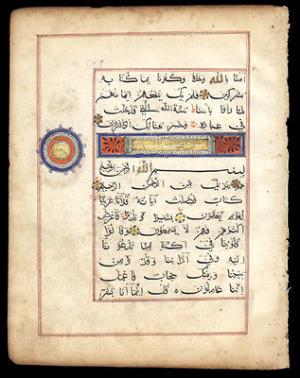 امنا بالله وحده وكفرنا بما كنا به
مشركين فلم يك ينفعهم ايمانهم
لما راوا باسنا سنة الله التي قد خلت
في عباده وخسر هنالك الكافرون
بسم الله الرحمن الرحيم
حم تنزيل من الرحمن الرحيم
كتاب فصلت اياته قرانا عربيا
لقوم يعلمون بشيرا ونذيرا فاعرض
اكثرهم فهم لا يسمعون وقالوا
قلوبنا في اكنة مما تدعونا
اليه وفي اذاننا وقر ومن
بيننا وبينك حجاب فاعمل
اننا عاملون قل انما انا بشر